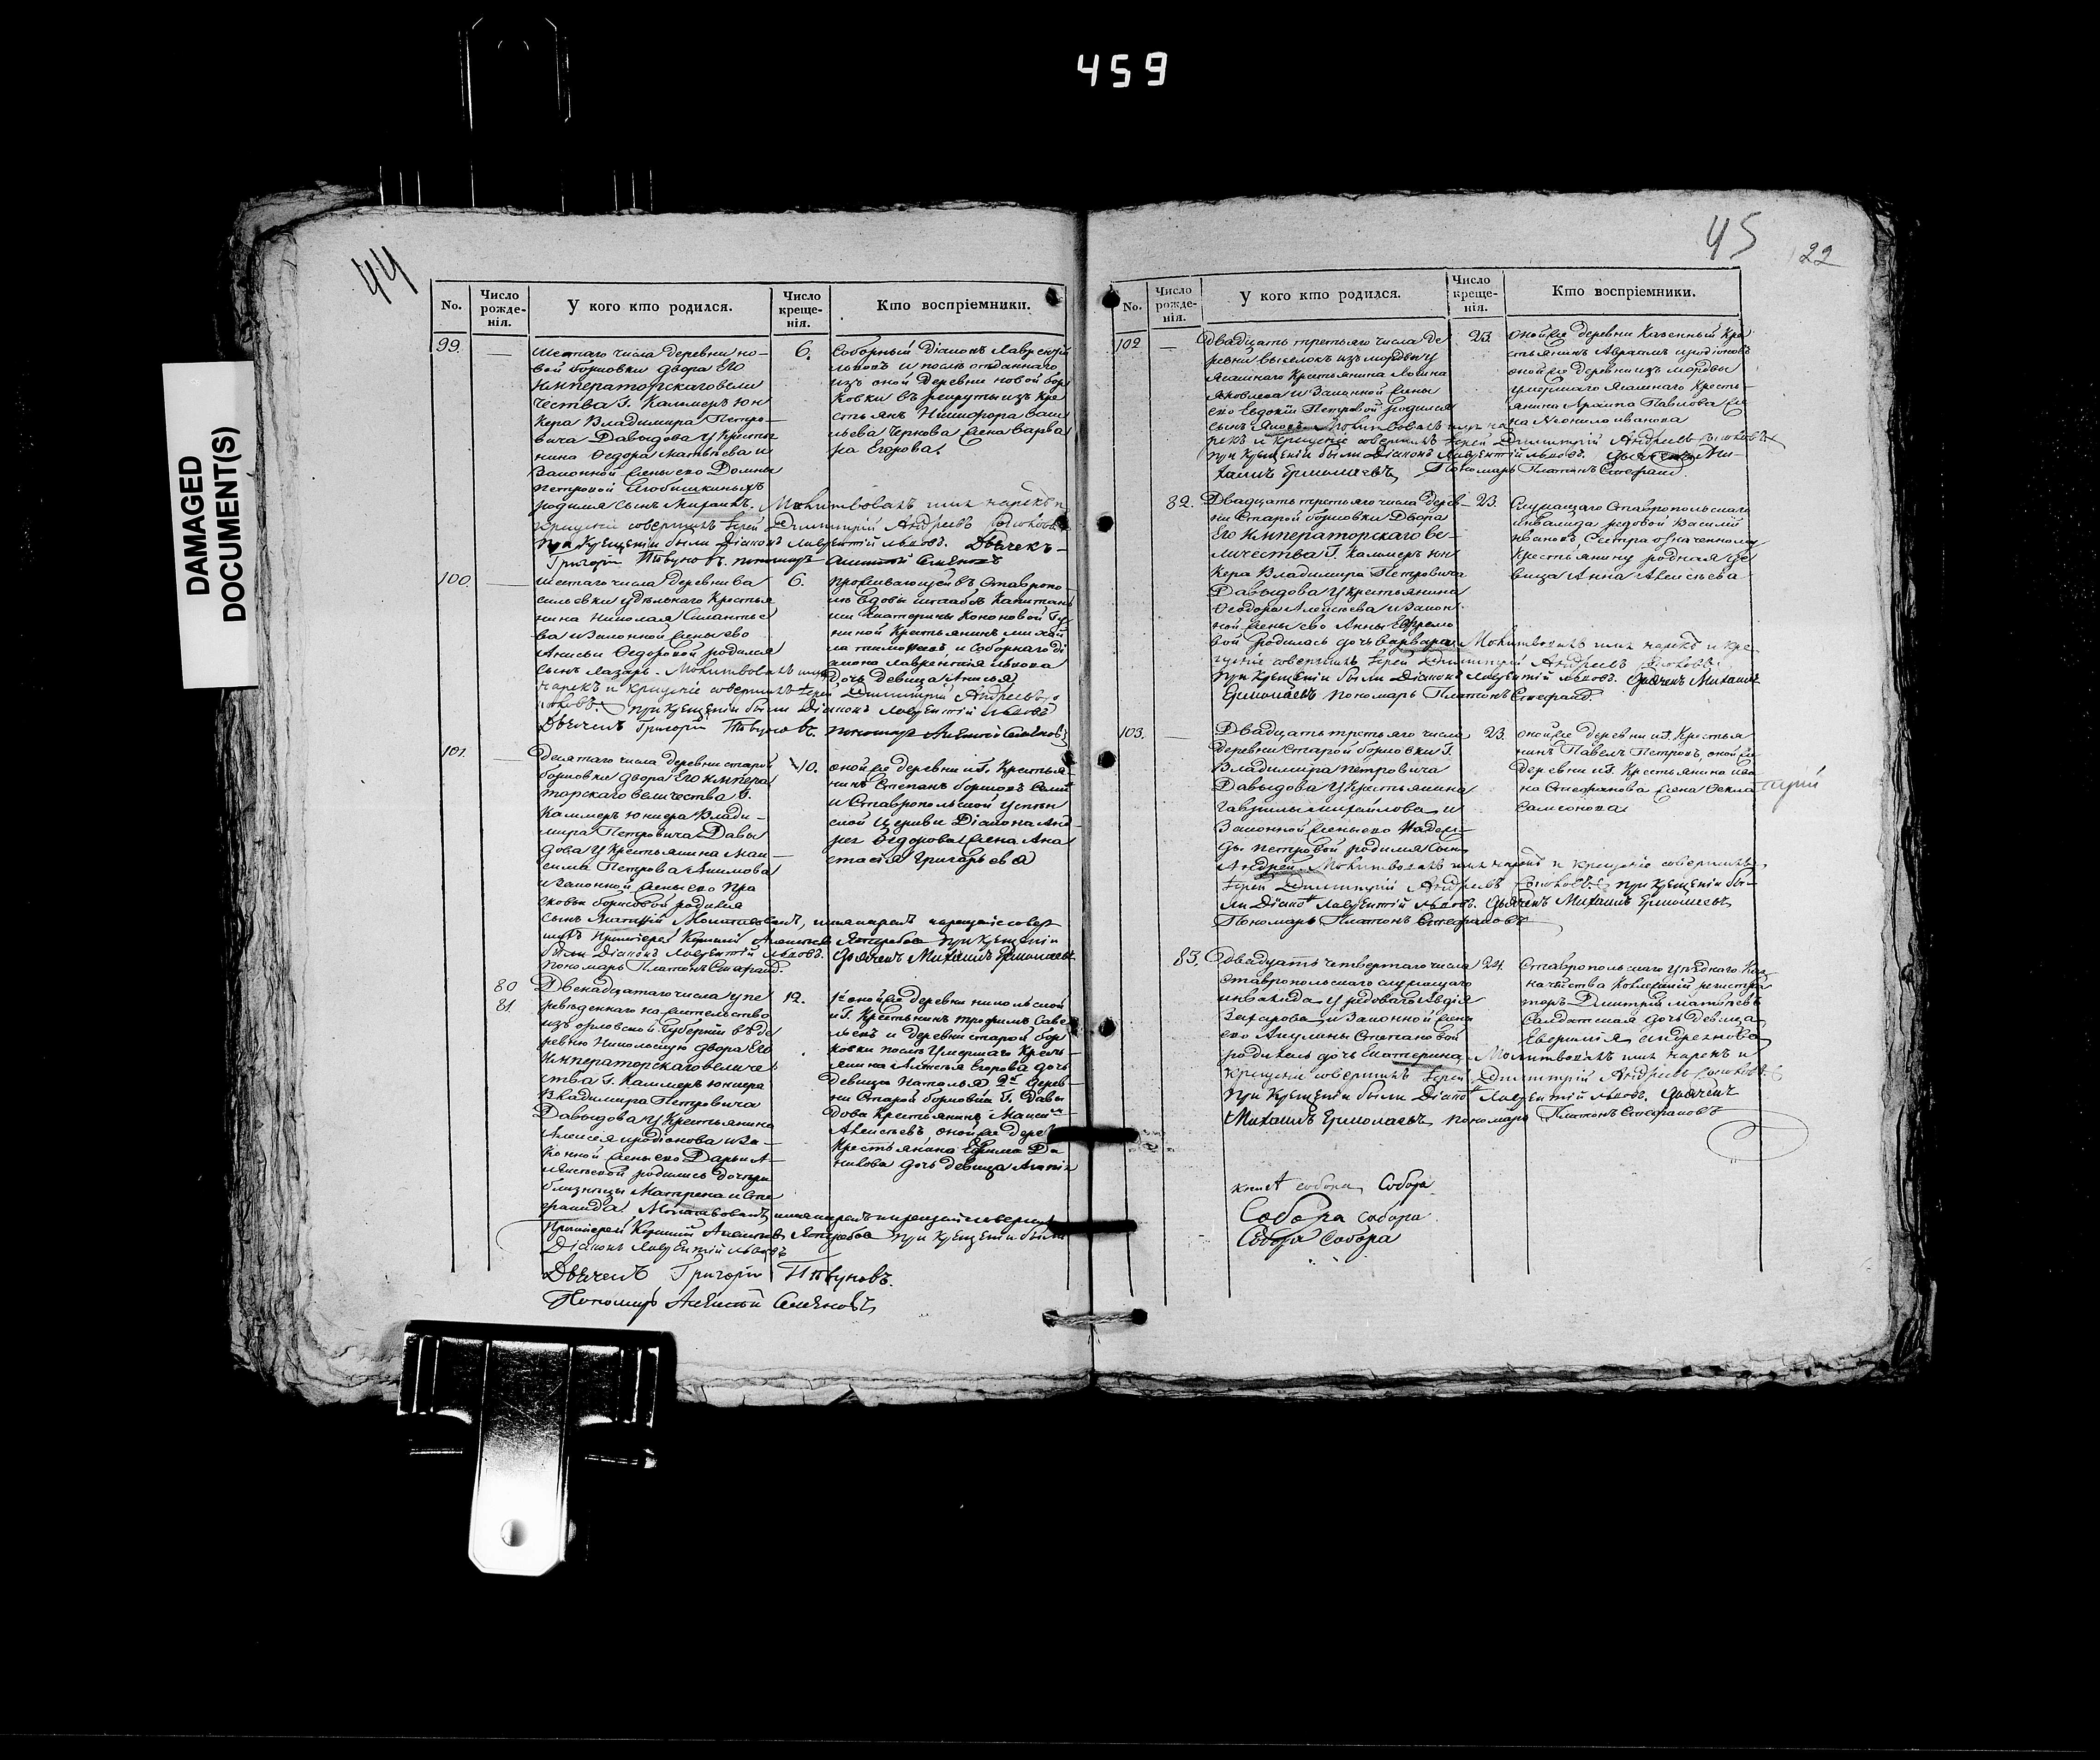 459
DAMAGED
DOCUMENT(S)
44
No.
Число рожде-нія.
У кого кто родился.
Число креще-нія.
Кто воспріемники.
99.
Шестаго числа деревни но-
вой борковки двора Его
Императорскаго вели
чества Г. Каммеръ юн
кера Владимира Петро-
вича Давыдова у Кресть
нина Федора Матвѣева и
Законной жены его Домны
Петровой
родился сынъ Молитвовалъ имя нарекъ и
крещеніе совершилъ Іерей Димитрій Андреевъ
при крещеніи были Діаконъ Лаврентій Львовъ. Дьячекъ
Григорій пономарь Алексѣй
6.
Соборный Діаконъ Лаврентій
Львовъ и послѣ отданнаго
изъ оной деревни новой бор
ковки въ рекруты изъ кре
стьянъ Никифора Васи
льева Чернова жена Варва
ра Егорова.
100.
Шестаго числа деревни Ва
сильевки удѣльнаго Крестья
нина Николая Силантье
ва и Законной жены его
Анисьи Федоровой родился
сынъ Лазарь. Молитвовалъ имя
нарекъ и крещеніе совершилъ Іерей Димитрій Андреевъ
при крещеніи были Діаконъ Лаврентій Львовъ
Дьячекъ Григорій пономарь Алексѣй
6.
Проживающей въ Ставропо
лѣ вдовы штабсъ Капитан
ши Екатерины Кононовой
Крестьянинъ Михай
ла и Соборнаго Ді
акона Лаврентія Львова
дочь девица Анисья
101.
Девятаго числа деревни старой
борковки двора Его импера
торскаго величества Г.
Каммеръ юнкера Влади-
мира Петровича Давы
дова у Крестьянина Мак-
сима Петрова Акимова
и законной жены его Пра
сковьи борисовой родился
сынъ Молитвовалъ, имя нарекъ и крещеніе совер
шилъ Протоіерей при крещеніи
были Діаконъ Лаврентій Львовъ. Дьячекъ Михаилъ Ермолаевъ
Пономарь Платонъ Стефановъ
10.
оной же деревни Г. Крестья-
нинъ Степанъ
и Ставропольской Успен
ской Церкви Діакона Анд-
рея Федорова жена Ана
стасія Григорьева
80
81
Двенадцатаго числа у пе
реведеннаго на жительство
изъ орловской Губерніи въ де
ревню Никольскую двора Его
Императорскаго величе
ства Г. Каммеръ юнкера
Владимира Петровича
Давыдова у Крестьянина
Алексея иродіонова и За-
конной жены его Дарьи А-
лексѣевой родились дочери
близнецы Матрена и Сте
фанида Молитвовалъ имя нарекъ и крещеніе совершилъ
Протоіерей при крещеніи были
Діаконъ Лаврентій Львовъ
Дьячекъ Григорій
Пономарь Алексѣй
12.
1й оной же деревни никольской
Г. Крестьянинъ Трофимъ Саве
льевъ и деревни старой бор
ковки послѣ умершаго Кресть
янина Алексѣя Егорова дочь
девица Наталья 2й дерев-
ни Старой борковки Г. Давы
дова Крестьянинъ Максимъ
Алексѣевъ оной же дерев
Крестьянина Ефима Да
нилова дочь девица
45
22
No.
Число рожде-нія.
У кого кто родился.
Число креще-нія.
Кто воспріемники.
102
Двадцать третьяго числа де
ревни выселокъ изъ мордвы у
Ясашнаго Крестьянина Логина
Яковлева и Законной жены
его Евдокіи Петровой родился
сынъ Яковъ Молитвовалъ имя на
рекъ и крещеніе совершилъ Іерей Димитрій Андреевъ
при крещеніи были Діаконъ Лаврентій Львовъ. Дьячекъ Ми-
хаилъ Ермолаевъ, Пономарь Платонъ Стефановъ
23.
оной же деревни Казенный Кре
стьянинъ Аврамъ иродіоновъ
оной же деревни изъ мордвы
умершаго Ясашнаго Кресть-
янина Павлова же
на Неонила иванова
82.
Двадцать третьяго числа дерев-
ни Старой борковки Двора
Его Императорскаго ве-
личества Г. Каммеръ юн
кера Владимира Петровича
Давыдова у Крестьянина
Феодора Алексѣева и Закон
ной жены его Анны Ефремо
вой родилась дочь Варвара Молитвовалъ имя нарекъ и кре-
щеніе совершилъ Іерей Димитрій Андреевъ
при крещеніи были Діаконъ Лаврентій Львовъ. Дьячекъ Михаилъ
Ермолаевъ пономарь Платонъ Стефановъ.
23.
Служащаго Ставропольскаго
инвалида редовой Василій
ивановъ, Сестра означенному
Крестьянину родная де
вица Анна Алексѣева
103.
Двадцать третьяго числа
деревни Старой борковки Г.
Владимира Петровича
Давыдова у Крестьянина
Гаврилы Михайлова и
Законной жены его Надеж-
ды Петровой родился сынъ
Андрей. Молитвовалъ имя нарекъ и крещеніе совершилъ
Іерей Димитрій Андреевъ при крещеніи бы-
ли Діаконъ Лаврентій Львовъ. Дьячекъ Михаилъ Ермолаевъ
Пономарь Платонъ Стефановъ
23.
оной же деревни Г. Крестья
нинъ Павелъ Петровъ, оной же
деревни Г. Крестьянина ива
на Стефанова жена Фекла
Самсонова
83.
Двадцать четвертаго числа
Ставропольскаго служащаго
инвалида у редоваго Авдія
Захарова и Законной жены
его Акулины Степановой
родилась дочь Екатерина Молитвовалъ имя нарекъ и
крещеніе совершилъ Іерей Димитрій Андреевъ
при крещеніи были Діаконъ Лаврентій Львовъ. Дьячекъ
Михаилъ Ермолаевъ пономарь Платонъ Стефановъ
24.
Ставропольскаго уѣзднаго Каз
начейства Коллежскій регистра
торъ Дмитрій Матвѣевъ
Салдатская дочь девица
Евфимія андреянова
собора Собора
Собора собора
Собора Собора